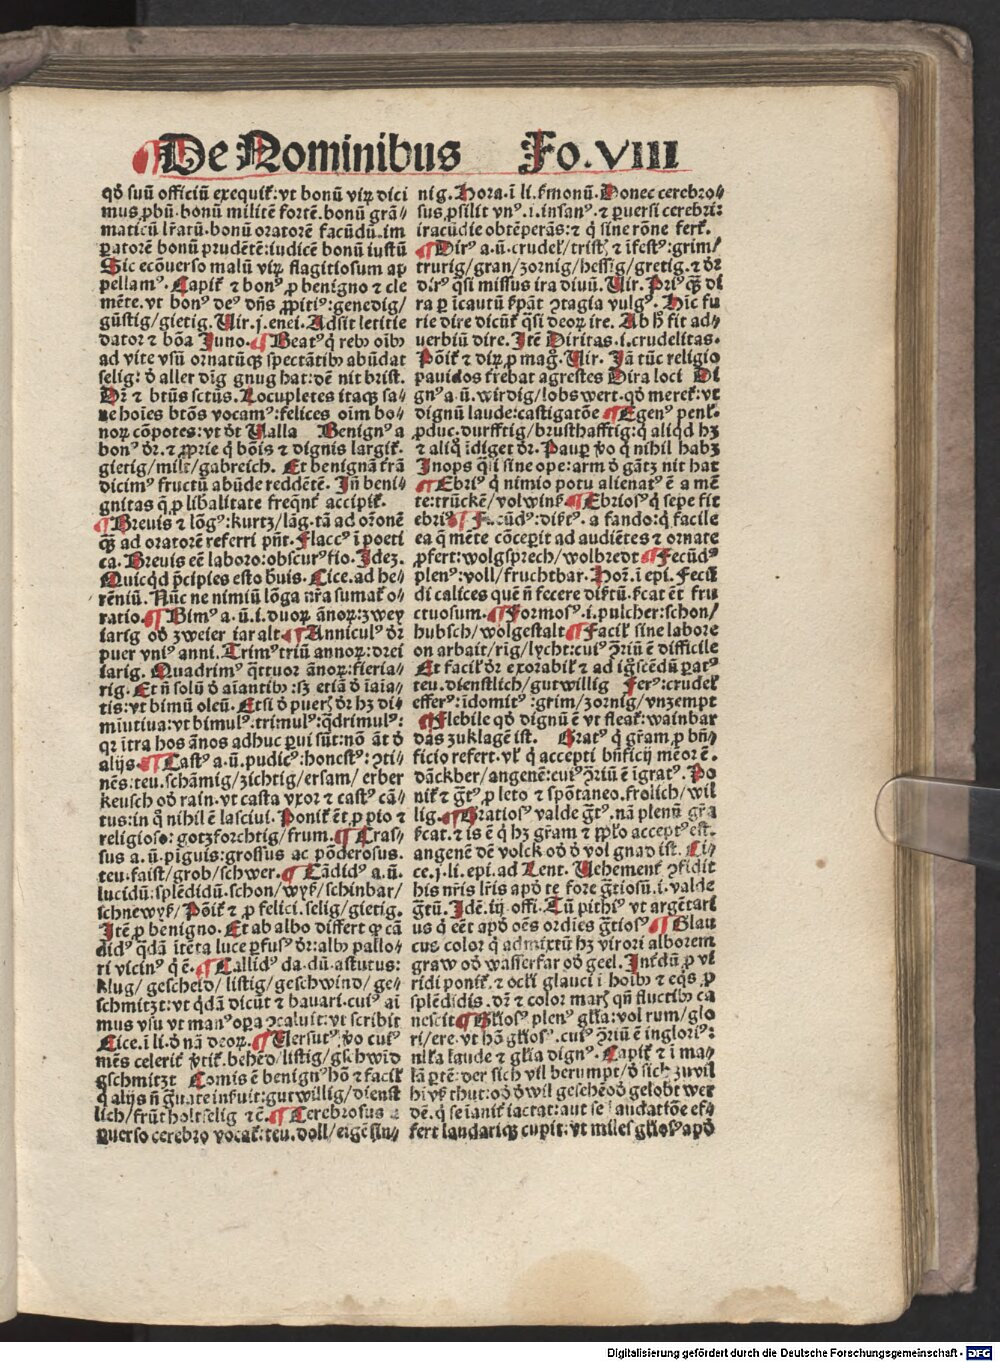 De Nominibus Fo.VIII
qď suū officiū exequiť: vt bonū viꝝ dici
mus ꝓbū. bonū militē fortē. bonū grā⸗
maticū lr̄atū. bonū oratorē facūdū. im
ꝑatorē bonū prudētē: iudicē bonū iustū
Sic ecōuerso malū viꝝ flagitiosum ap
pellamꝰ. Capiť ⁊ bonꝰ ꝓ benigno ⁊ cle
mēte. vt bonꝰ deꝰ dn̄s ꝓpitiꝰ: genedig/
gūstig/gietig. Uir. j. enei. Adsit letitie
dator ⁊ bōa Juno. ¶ Beatꝰ q̇ rebꝰ oībꝰ
ad vite vsū ornatūqꝫ spectātibꝰ abūdat
selig: d̄ aller dīg gnug hat: dē nit brist.
Dr̄ ⁊ btūs sctūs. Locupletes itaqꝫ sa⸗
ne hoīes btōs vocamꝰ: felices oīm bo⸗
noꝝ cōpotes: vt d̄t Ualla Benignꝰ a
bonꝰ dr̄. ⁊ ꝓprie q̇ bōis ⁊ dignis largiť.
gietig/milt/gabreich. Et benignā t̄rā
dicimꝰ fructū abūde reddētē. Jn̄ beni⸗
gnitas q̄ ꝓ lib̄alitate freqn̄t accipiť.
¶ Breuis ⁊ lōgꝰ: kurtz/lāg. tā ad or̄onē
qꝫ ad oratorē referri pn̄t. Flaccꝰ ī poeti
ca. Breuis eē laboro: obscurꝰ fio. Jdeꝫ.
Quicqͥd p̄cipies esto b̄uis. Cice. ad he⸗
rēniū. Nūc ne nimiū lōga nr̄a sumať o⸗
ratio. ¶ Bimꝰ a. ū. i. duoꝝ ānoꝝ: zwey
iarig od̄ zweier iar alt. ¶ Anniculꝰ dr̄
puer vniꝰ anni. Trimꝰ triū annoꝝ: drei
iarig. Quadrimꝰ q̄ttuor ānoꝝ: fieria⸗
rig. Et n̄ solū d̄ aīantibꝰ: sꝫ etiā d̄ īaīa⸗
tis: vt bimū oleū. Etsi d̄ pueris dr̄ hꝫ di⸗
mīutiua: vt bimulꝰ: trimulꝰ: q̄drimulꝰ:
qꝛ ītra hos ānos adhuc ꝑui sūt: nō āt d̄
alijs. ¶ Castꝰ a. ū. pudicꝰ: honestꝰ: ↄti⸗
nēs: teu. schāmig/zichtig/ersam/erber
keusch od̄ rain. vt casta vxor ⁊ castꝰ cā⸗
tus: in q̄ nihil ē lasciui. Poniť ēt ꝓ pio ⁊
religioso: gotzforchtig/frum. ¶ Cras⸗
sus a. ū. pīguis: grossus ac pōderosus.
teu. faist/grob/schwer. ¶ Cādidꝰ a. ū.
lucidū: splēdidū. schon/wyß/schinbar/
schneewyß/Pōiť ⁊ ꝓ felici. selig/gietig.
Jtē ꝓ benigno. Et ab albo differt qꝛ cā
didꝰ q̄dā ītēta luce ꝑfusꝰ dr̄: albꝰ pallo⸗
ri vicinꝰ q̇ ē. ¶ Callidꝰ da. dū. astutus:
klug/gescheid/listig/geschwind/ge⸗
schmitzt: vt q̇dā dicūt ⁊ bauari. cuiꝰ ai
mus vsu vt manꝰ oꝑa ↄcaluit: vt scribit
Cice. ī li. d̄ nā deoꝝ. ¶ Uersutꝰ v̄o cuiꝰ
mēs celeriť v̄tiť. behēd/listig/gschwīd
gschmitzt Comis ē benignꝰ hō ⁊ facil
q̇ alijs n̄ g̈uate inſuit: gutwillig/dienst
lich/frūtholtselig ⁊c̄. ¶ Cerebrosus a
ꝑuerso cerebro vocať: teu. doll/eigēsin⸗
nig. Hora. ī li. s̄monū. Donec cerebro⸗
sus ꝓsilit vnꝰ. i. insanꝰ. ⁊ ꝑuersi cerebri:
iracūdie obtēperās: ⁊ q̇ sine rōne ferť.
¶ Dirꝰ a. ū. crudeľ/tristꝭ ⁊ īfestꝰ: grim/
trurig/gran/zornig/hessig/gretig. ⁊ dr̄
dirꝰ q̄si missus ira diuū. Uir. Priꝰ qꝫ di
ra ꝑ īcautū ſꝑāt ↄtagia vulgꝰ. Hīc fu
rie dire dicūť q̄si deoꝝ ire. Ab h̄ fit ad⸗
uerbiū dire. Jtē Diritas. i. crudelitas.
Pōiť ⁊ dirꝝ ꝓ mag̊. Uir. Jā tūc religio
pauidos trebat agrestes Dira loci Di
gnꝰ a. ū. wirdig/lobs wert. qď mereť: vt
dignū laude: castigatōe ¶ Egenꝰ penľ.
ꝓduc. durfftig/brusthafftig: q̇ aliqd hꝫ
⁊ aliqͦ īdiget dr̄. Pauꝑ v̄o q̇ nihil habꝫ
Jnops q̄si sine ope: arm d̄ gātz nit hat
¶ Ebriꝰ q̇ nimio potu alienatꝰ ē a mē
te: trūckē/vol winß ¶ Ebriosꝰ q̇ sepe fit
ebriꝰ ¶ Facūdꝰ: disertꝰ. a fando: q̇ facile
ea q̄ mēte cōcepit ad audiētes ⁊ ornate
ꝓfert: wolgsprech/wolbredt ¶ Fecūdꝰ
plenꝰ: voll/fruchtbar. Hor̄. ī epi. Fecū
di calices quē n̄ fecere disertū. ſcāt ēt fru
ctuosum. ¶ Formosꝰ. i. pulcher: schon/
hubsch/wolgestalt ¶ Faciľ sine labore
on arbait/rig/lycht: cuiꝰ ↄriū ē difficile
Et faciľ dr̄ exorabiľ ⁊ ad ig̊scēdū ꝑatꝰ
teu. dienstlich/gutwillig Ferꝰ: crudeľ
efferꝰ: īdomitꝰ: grim/zornig/vnzempt
¶ Flebile qď dignū ē vt fleať: wainbar
das zuklagē ist. Gratꝰ q̇ gr̄am ꝓ bn̄⸗
ficio refert. vľ q̇ accepti bn̄ficij meōr ē.
dāckber/angenē: cuiꝰ ↄriū ē īgratꝰ. Po
niť ⁊ g̈tꝰ ꝓ leto ⁊ spōtaneo. frolich/wil
lig. ¶ Gratiosꝰ valde g̈tꝰ. nā plenū gr̄a
ſcat. ⁊ is ē q̇ hꝫ gr̄am ⁊ ꝓpl̄o acceptꝰ est.
angenē dē volck od̄ d̄ vol gnad ist. Ci⸗
ce. j. li. epi. ad Lent. Uehementꝰ ↄfidit
his nr̄is lr̄is apd̄ te fore g̈tiosū. i. valde
g̈tū. Jdē. iij. offi. Tū pithiꝰ vt argētari
us q̇ eēt apd̄ oēs ordies g̈tiosꝰ ¶ Glau
cus color q̇ admixtū hꝫ virori alborem
graw od̄ wasserfar od̄ geel. Jntdū ꝓ vi
ridi poniť. ⁊ ocłi glauci ī hoībꝰ ⁊ eqͥs ꝓ
splēdidis. dr̄ ⁊ color marꝭ qn̄ fluctibꝰ ca
nescit ¶ Głiosꝰ plenꝰ głia: vol rum/glo
ri/ere. vt hō głiosꝰ. cuiꝰ ↄriū ē inglorꝰ:
nľla laude ⁊ głia dignꝰ. Capiť ⁊ ī ma⸗
lā ꝑtē: der sich vil berumpt/d̄ sich zuvil
hi vß thut: od̄ d̄ wil geschēod̄ gelobt wer
dē. q̇ se īaniť iactat: aut se laudatōe ef⸗
fert laudariqꝫ cupit: vt miles głiosꝰ apd̄
Digitalisierung gefördert durch die Deutsche Forschungsgemeinschaft - DFG